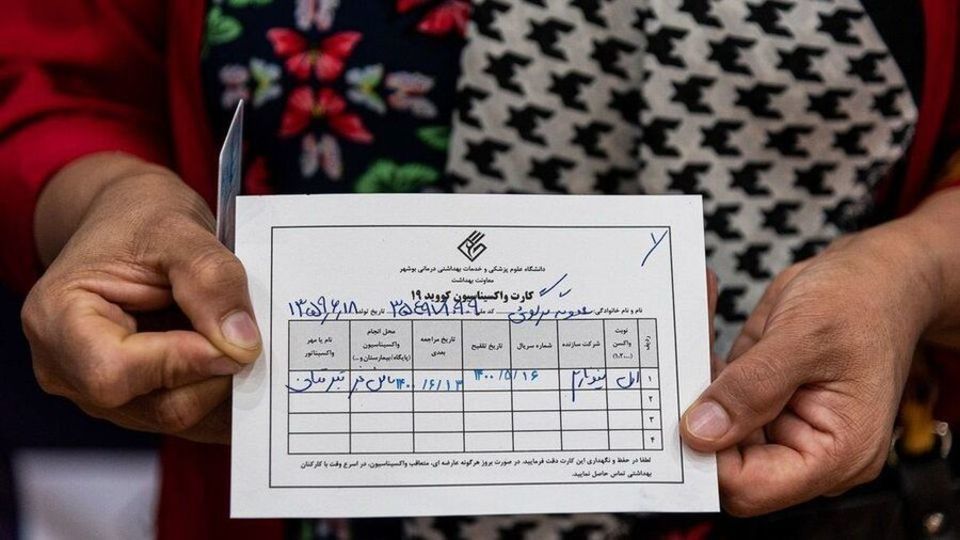 دانشگاه علوم پزشکی و خدمات بهداشتی درمانی بوشهر
معاونت بهداشت
کارت واکسیناسیون کووید ۱۹
نام و نام خانوادگی: کد ملی تاریخ تولد ۱۳۵۹/۶/۱۸
ردیف نوبت واکسن (۱،۲،...) شرکت سازنده شماره سریال تاریخ تلقیح تاریخ مراجعه بعدی محل انجام واکسیناسیون (پایگاه/بیمارستان و...) نام یا مهر واکسیناتور
۱ اول ۱۴۰۰/۵/۱۶ ۱۴۰۰/۶/۱۳
۲
۳
۴
لطفا در حفظ و نگهداری این کارت دقت فرمایید. در صورت بروز هرگونه عارضه ای، متعاقب واکسیناسیون، در اسرع وقت با کارکنان
بهداشتی تماس حاصل نمایید.